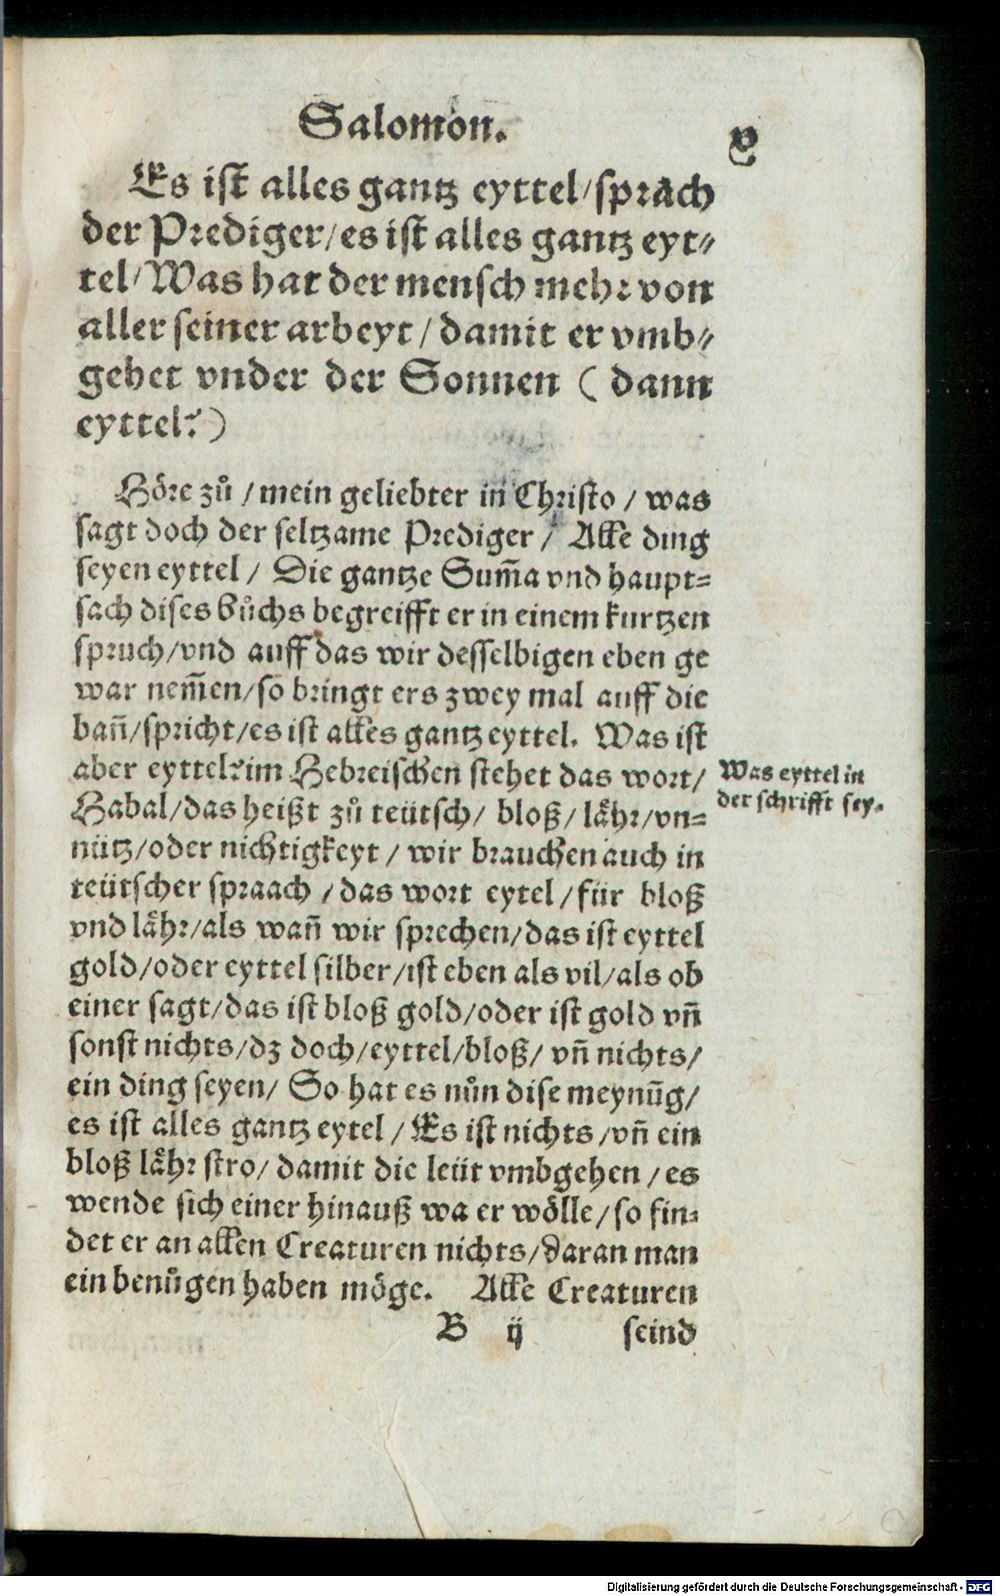 Salomon.
v
Es ist alles gantz eyttel/sprach
der Prediger/es ist alles gantz eyt⸗
tel/Was hat der mensch mehr von
aller seiner arbeyt/damit er vmb⸗
gehet vnder der Sonnen (dann
eyttel?)
Höre zů/mein geliebter in Christo/was
sagt doch der seltzame Prediger/ Alle ding
seyen eyttel/ Die gantze Sum̃a vnd haupt⸗
sach dises bůchs begreifft er in einem kurtzen
spruch/vnd auff das wir desselbigen eben ge
war nem̃en/so bringt ers zwey mal auff die
bañ/spricht/es ist alles gantz eyttel. Was ist
aber eyttel? im Hebreischen stehet das wort/
Habal/das heißt zů teütsch/ bloß/lähr/vn⸗
nütz/oder nichtigkeyt/wir brauchen auch in
teütscher spraach/das wort eytel/für bloß
vnd lähr/als wañ wir sprechen/das ist eyttel
gold/oder eyttel silber/ist eben als vil/als ob
einer sagt/das ist bloß gold/oder ist gold vñ
sonst nichts/dz doch/eyttel/bloß/vñ nichts/
ein ding seyen/ So hat es nůn dise meynũg/
es ist alles gantz eytel/Es ist nichts/vñ ein
bloß lähr stro/damit die leüt vmbgehen/es
wende sich einer hinauß wa er wölle/so fin⸗
det er an allen Creaturen nichts/daran man
ein benůgen haben möge. Alle Creaturen
B ij seind
Was eyttel in
der schrifft sey.
Digitalisierung gefördert durch die Deutsche Forschungsgemeinschaft - DFG